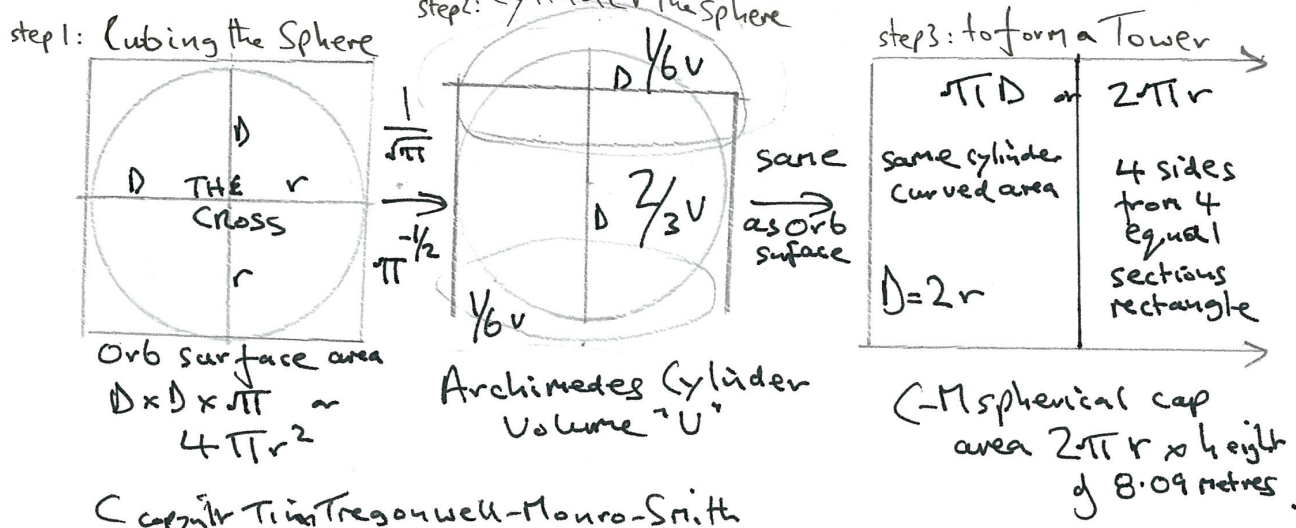 step 1: Cubing the Sphere
D
D THE r
CROSS
r
Orb surface area
D x D x π or
4πr²
1
√π
π^-1/2
step2: the Sphere
D 1/6 v
D 2/3 v
1/6 v
Archimedes Cylinder
Volume "U"
same
as Orb
surface
step3: to form a Tower
πD or 2πr
same cylinder
curved area
D=2r
4 sides
from 4
equal
sections
rectangle
C-M spherical cap
area 2πr x height
of 8.09 metres.
C Tim Tregonwell-Monro-Smith